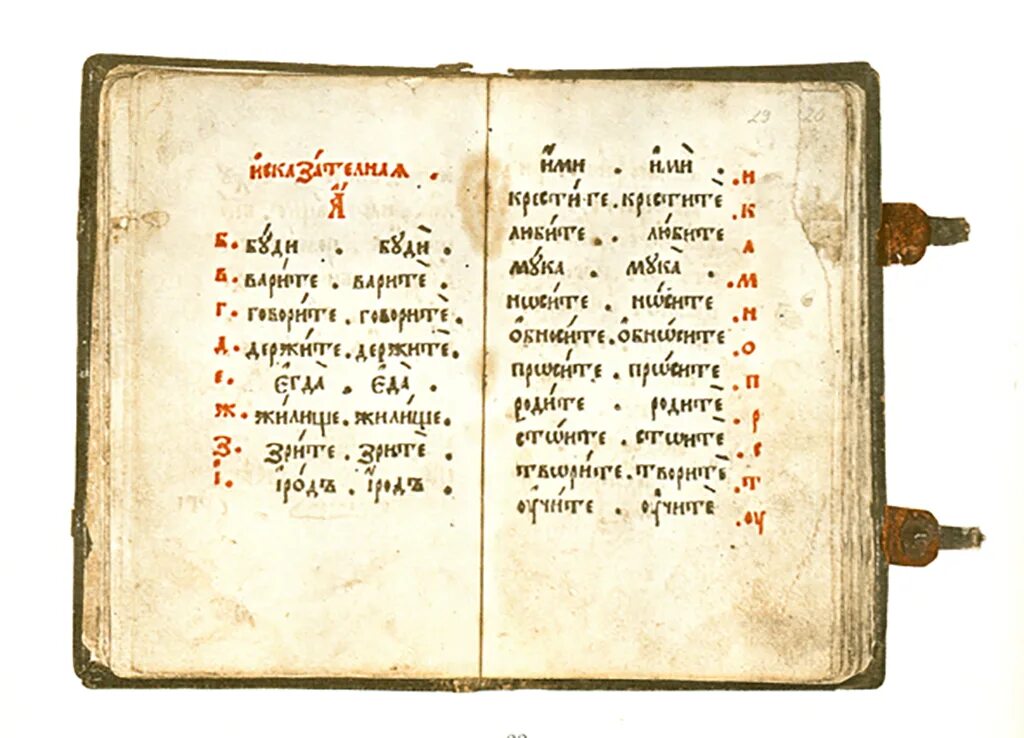 и҆сказа́телнаѧ .
А҆́
Б. бꙋ́ди . бꙋдѝ .
В. вари́те . варитѐ .
Г. говори́те . говоритѐ .
Д. держи́те . держитѐ .
Е. є҆гда̀ . є҆да̀ .
Ж. жи́лище . жили́ще .
З. зри́те . зритѐ .
І. і҆ро́дъ . і҆́родъ .
29 20
и҆́ми . и҆мѝ . И
крести́те . креститѐ . К
люби́те . лю́бите . Л
мꙋ́ка . мꙋка̀ . М
нѡси́те . нѡ́сите . Н
ѻ҆бноси́те . ѻ҆бнѡ́сите . О
прѡси́те . прѡ́сите . П
роди́те . родитѐ . Р
стѡ́ите . стѡитѐ . С
твѡри́те . творитѐ . Т
ᲂу҆чи́те . ᲂу҆́чите . ОУ